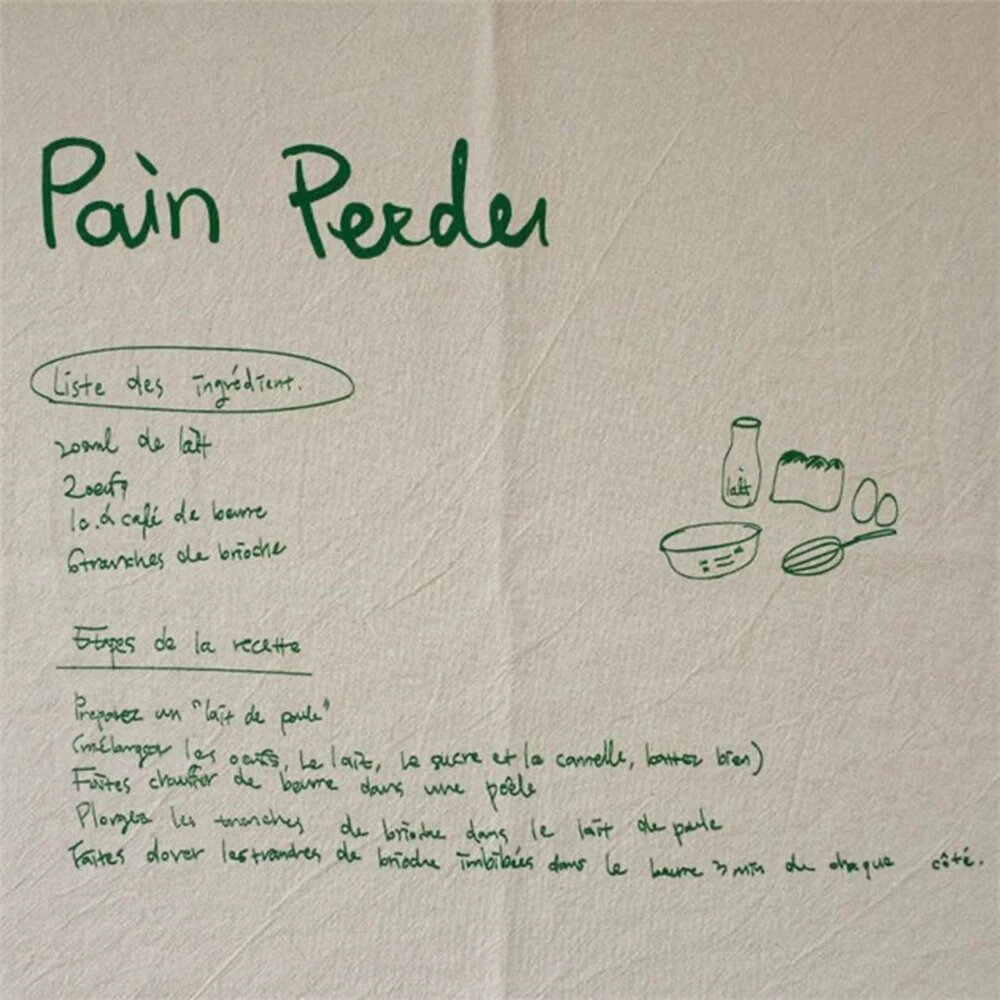 Pain Perdu
Liste des ingrédient.
200ml de lait
2oeufs
1c.à café de beurre
6tranches de brioche
Etapes de la recette
Preparez un "lait de poule"
(mélanger les oeufs, Le lait, le sucre et la cannelle, battez bien)
Faites chauffer de beurre dans une poêle
Plongez les tranches de brioche dans le lait de poule
Faites dorer les tranches de brioche imbibées dans le beurre 3 min de chaque côté.
lait